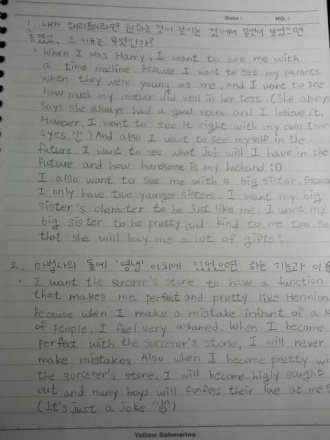 Date : NO. :
1. 내가 해리포터라면 원하는 것이 보이는 것에서 무엇이 보였으면
좋겠고, 그 이유는 무엇인가?
• When I was Harry, I want to see me with
a time machine because I want to see my parents
when they were young as me, and I want to see
how much my mother did well in her test. (She always
says she always had a good score and I believe it.
However, I want to see it right with my own two
eyes.) And also I want to see myself in the
future. I want to see what job will I have in the
future and how handsome is my husband :D
I also want to see me with a big sister.
I only have two younger sisters. I want my big
sister's character to be just like me. I want my
big sister to be pretty and kind to me too so
that she will buy me a lot of gifts!
2. 마법사의 돌에 '영생' 이외에 있었으면 하는 기능과 이유
• I want the sorcerer's stone to have a function
that makes me perfect and pretty like Hermione
Because when I make a mistake infront of a
of people, I feel very ashamed. When I become
perfect with the sorcerer's stone, I will never
make mistakes. Also when I become pretty wi
the sorcerer's stone, I will become higly sought
out and many boys will confess their love at me
(It's just a joke)
Yellow Submarine